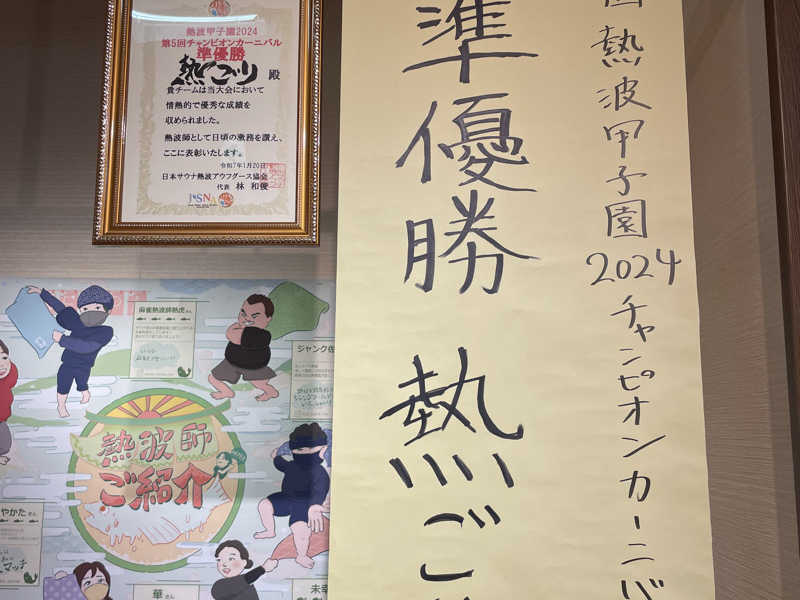 熱波甲子園2024
第5回チャンピオンカーニバル
準優勝
熱ごり 殿
貴チームは当大会において
情熱的で優秀な成績を
収められました。
熱波師として日頃の激務を讃え、
ここに表彰いたします。
令和7年1月20日
日本サウナ熱波アウフグース協会
代表 林 和俊
JSNA
回 熱波甲子園2024チャンピオンカーニバ
準優勝 熱ご
麻雀熱波師熱虎さん
ジャンク佐
熱波師
ご紹介
やかた さん
華 さん
未幸